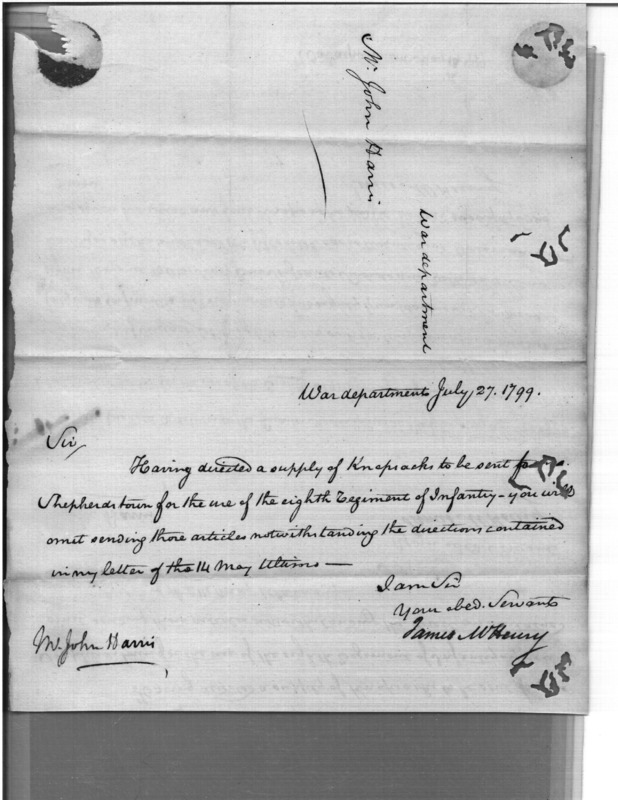 Mr John Harris
War department
War department July, 27. 1799.
Sir,
Having directed a supply of Knapsacks to be sent to
Shepherdstown for the use of the eighth Regiment of Infantry - you will
omit sending those articles notwithstanding the directions contained
in my letter of the 14 May Ultimo —
I am Sir
Your obed. Servant
James McHenry
Mr John Harris